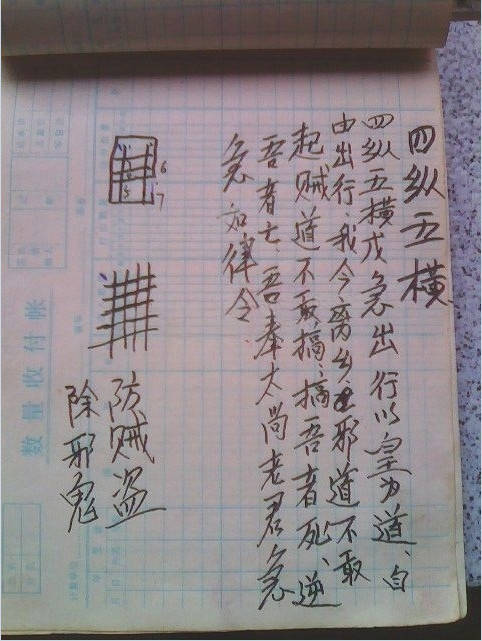 四纵五横
四纵五横戊急出行以皇为道、自
由出行、我今离乡邪道不敢
起贼道不敢搞、搞吾者死、逆
吾者亡、吾奉太尚老君急
急如律令
6
7
防贼盗
除邪鬼
数量收付帐